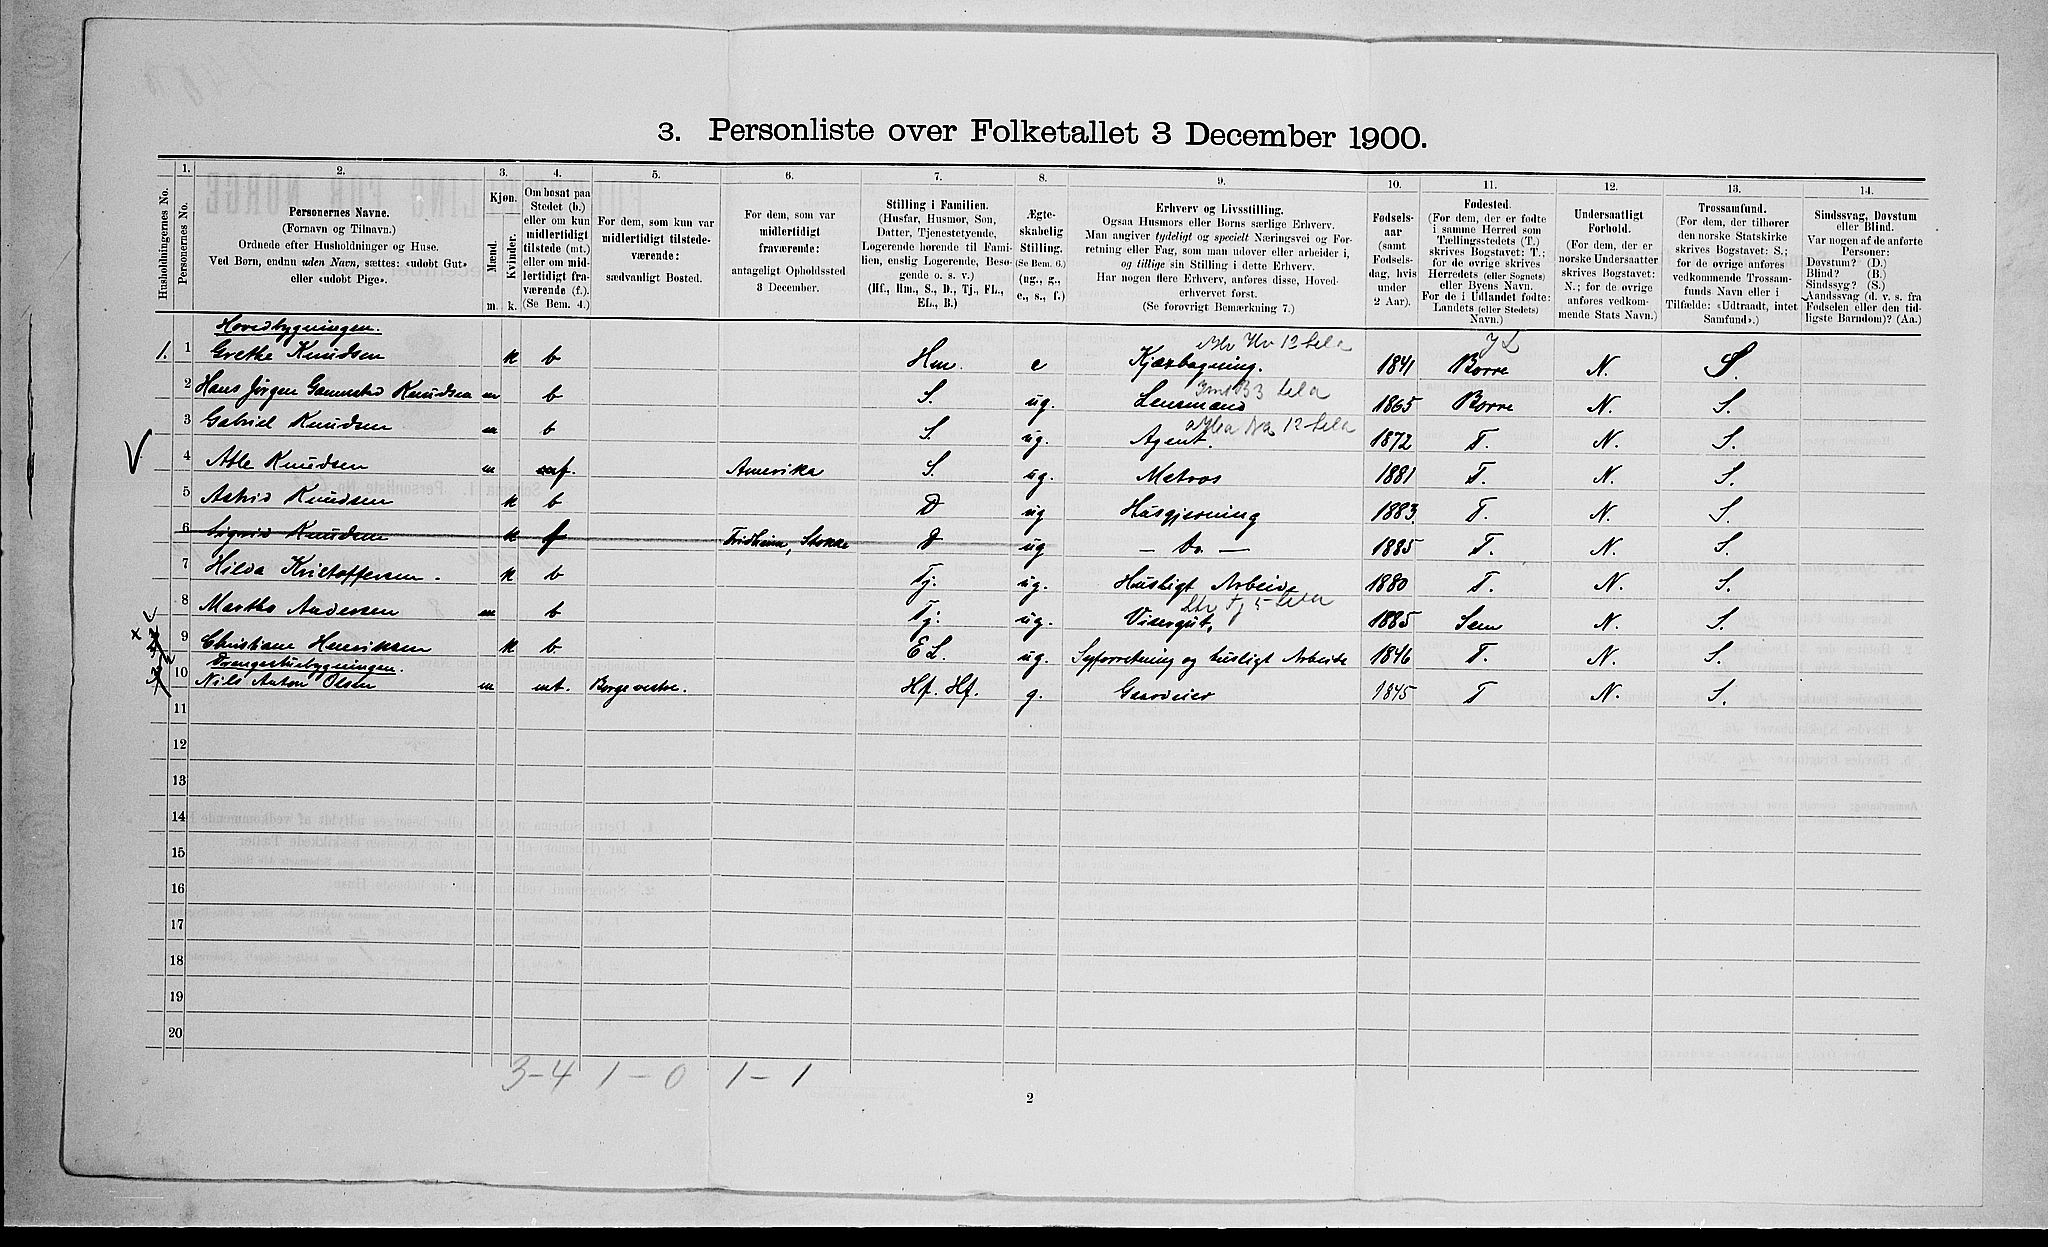 3. Personliste over Folketallet 3 December 1900.
Husholdningernes No.
1.
Personernes No.
2.
Personernes Navne.
(Fornavn og Tilnavn.)
Ordnede efter Husholdninger og Huse.
Ved Børn, endnu uden Navn, sættes: «udøbt Gut»
eller «udøbt Pige».
3.
Kjøn.
Mænd.
Kvinder.
m. k.
4.
Om bosat paa
Stedet (b.)
eller om kun
midlertidigt
tilstede (mt.)
eller om mid-
lertidigt fra-
værende (f.).
(Se Bem. 4.)
5.
For dem, som kun var
midlertidigt tilstede-
værende:
sædvanligt Bosted.
6.
For dem, som var
midlertidigt
fraværende:
antageligt Opholdssted
3 December.
7.
Stilling i Familien.
(Husfar, Husmor, Søn,
Datter, Tjenestetyende,
Logerende hørende til Fami-
lien, enslig Logerende, Besø-
gende o. s. v.)
(Hf., Hm., S., D., Tj., FL.,
EL., B.)
8.
Ægte-
skabelig
Stilling.
(Se Bem. 6.)
(ug., g.,
e., s., f.)
9.
Erhverv og Livsstilling.
Ogsaa Husmors eller Børns særlige Erhverv.
Man angiver tydeligt og specielt Næringsvei og For-
retning eller Fag, som man udøver eller arbeider i,
og tillige sin Stilling i dette Erhverv.
Har nogen flere Erhverv, anføres disse, Hoved-
erhvervet først.
(Se forøvrigt Bemærkning 7.)
10.
Fødsels-
aar
(samt
Fødsels-
dag, hvis
under
2 Aar).
11.
Fødested.
(For dem, der er fødte
i samme Herred som
Tællingsstedets (T.)
skrives Bogstavet: T.;
for de øvrige skrives
Herredets (eller Sognets)
eller Byens Navn.
For de i Udlandet fødte:
Landets (eller Stedets)
Navn.)
12.
Undersaatligt
Forhold.
(For dem, der er
norske Undersaatter
skrives Bogstavet:
N.; for de øvrige
anføres vedkom-
mende Stats Navn.)
13.
Trossamfund.
(For dem, der tilhører
den norske Statskirke
skrives Bogstavet: S.;
for de øvrige anføres
vedkommende Trossam-
funds Navn eller i
Tilfælde: «Udtraadt, intet
Samfund».)
14.
Sindssvag, Døvstum
eller Blind.
Var nogen af de anførte
Personer:
Døvstum? (D.)
Blind? (B.)
Sindssyg? (S.)
Aandssvag (d. v. s. fra
Fødselen eller den tid-
ligste Barndom)? (Aa.)
Hovedbygningen.
1. 1 Grethe Knudsen k b Hm. e Kjøxbagning. 1841 Borre N. S.
2 Hans Jørgen Knudsen m b S. ug. Lensmand 1865 Borre N. S.
3 Gabriel Knudsen m b S. ug. Agent. 1872 T. N. S.
4 Atle Knudsen m f. Amerika S. ug. Matros 1881 T. N. S.
5 Astrid Knudsen k b D ug Husgjerning 1883. T. N. S.
6 Sigrid Knudsen k f Fridheim, Stokke D ug — Do. — 1885 T. N. S.
7 Hilda Kristoffersen. k b Tj. ug. Husligt Arbeide 1880 T. N. S.
8 Marthe Andersen m b Tj. ug. Visergut. 1885 Sem N. S.
9 Christiane Henriksen k b EL. ug. Syforretning og husligt Arbeide 1846 T. N. S.
Drengestuebygningen.
10 Nils Anton Olsen m mt. Borge vestre. Hf. Hf. g. Gaardeier 1845 T N. S.
11
12
13
14
15
16
17
18
19
20
3-4 1-0 1-1
2